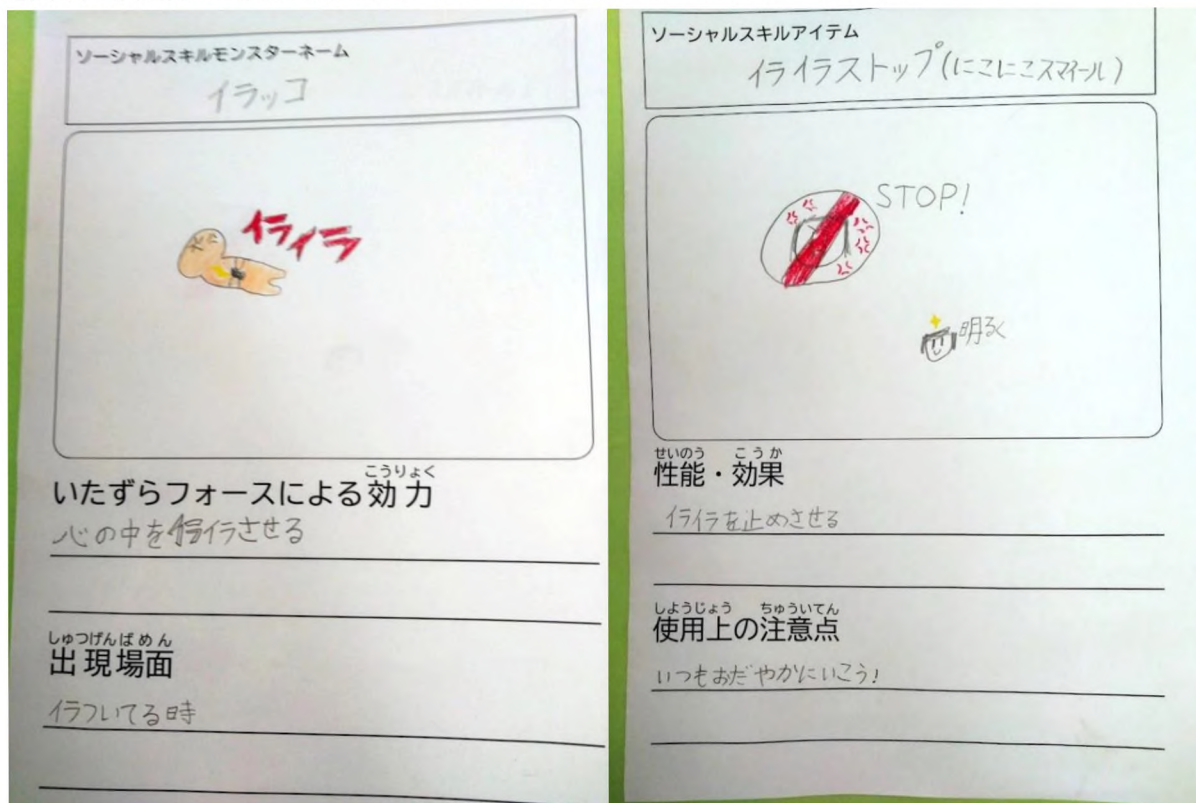 ソーシャルスキルモンスターネーム
イラッコ
イライラ
いたずらフォースによる効力
こうりょく
心の中を イラさせる
出現場面
しゅつげんばめん
イラついてる時
ソーシャルスキルアイテム
イライラストップ(にこにこスマイール)
STOP!
明るく
せいのう こうか
性能・効果
イライラを止めさせる
しようじょう ちゅういてん
使用上の注意点
いつもおだやかにいこう!